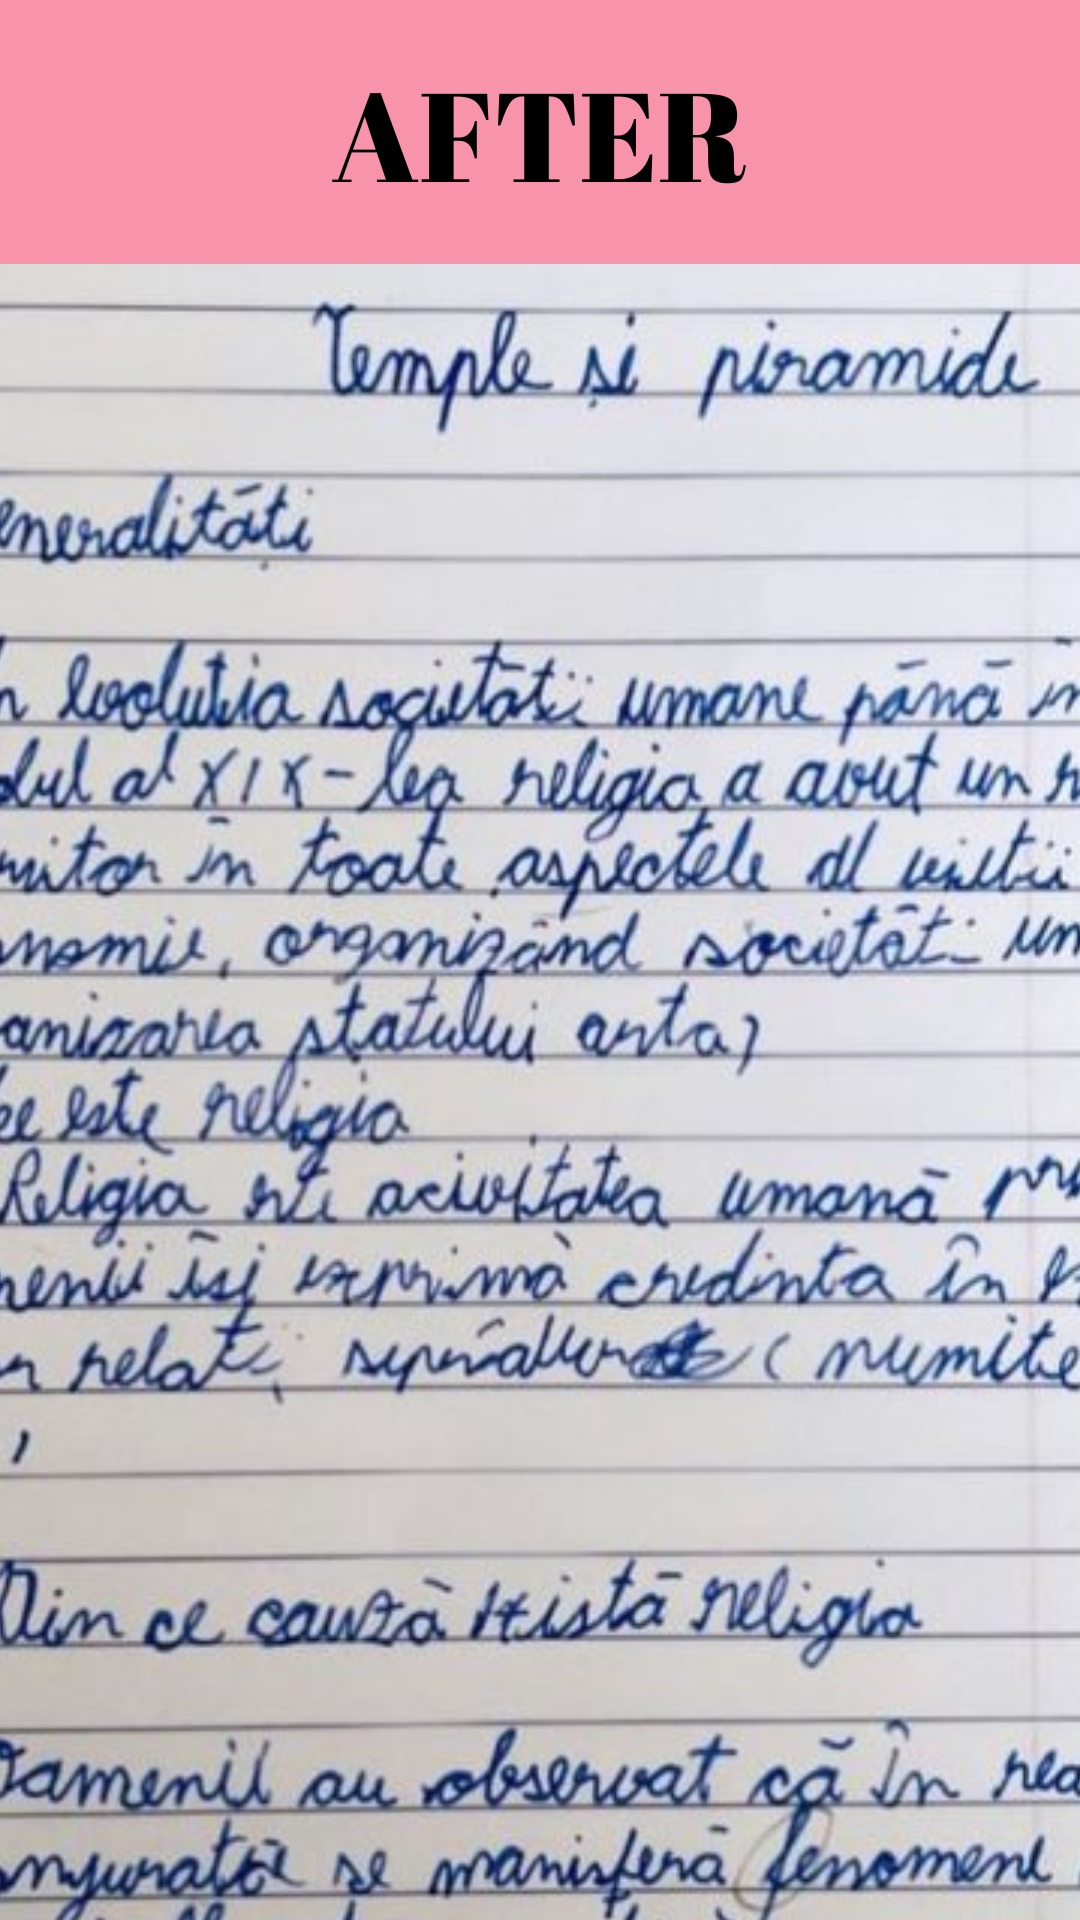 AFTER
Temple și piramide
eneralităti
n Evoluția societății umane până în
olul al XIX-lea religia a avut un r
mitor în toate aspectele
nomie, organizând societăți um
anizarea statului arta)
ce este religia
Religia este acivitatea umană pri
menii își exprimă credinta în
relații (numite
,
Din ce cauză există religia
Oamenii au observat că în rea
onjuratoe se manisferă fenomene